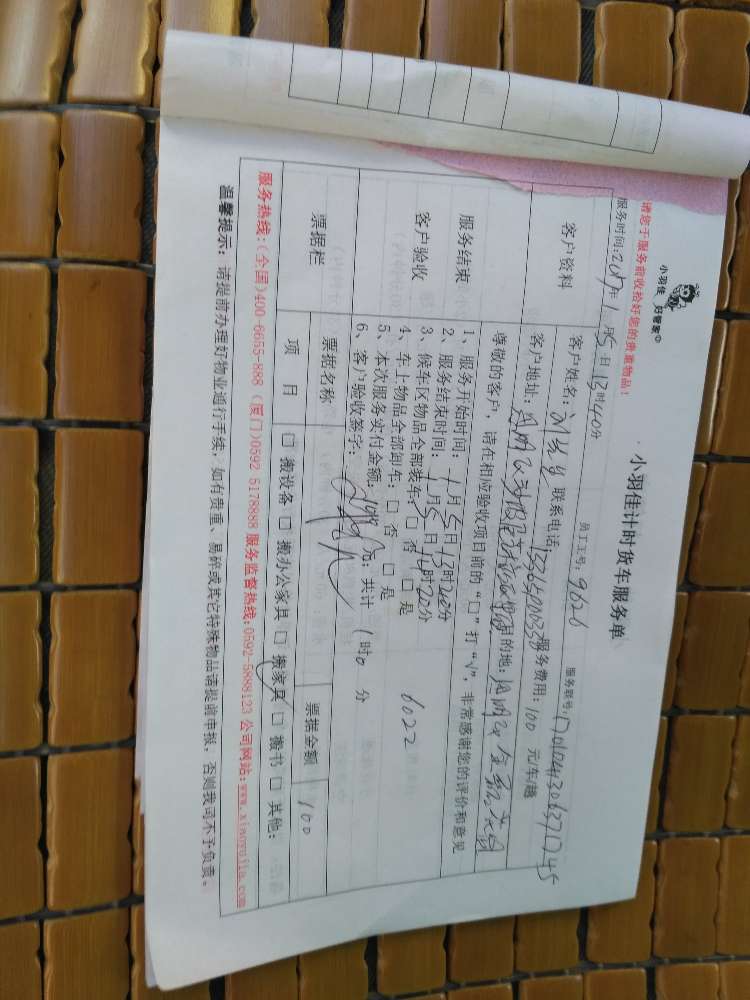 小羽佳 好管家
小羽佳计时货车服务单
请您于服务前收拾好您的贵重物品!
员工工号: 9626
服务联号: 1701041306371745
服务时间:2017年1月5日13时40分
客户资料
客户姓名: 联系电话: 服务费用: 100 元/车/趟
客户地址: 目的地:
尊敬的客户, 请在相应验收项目前的 “□” 打 “√”, 非常感谢您的评价和意见
服务结束
客户验收
1、服务开始时间: 1月5日13时20分
2、服务结束时间: 1月5日14时20分
3、候车区物品全部装车: □ 否 □ 是
6022
4、车上物品全部卸车: □ 否 □ 是
5、本次服务实付金额: 100元; 共计 1时0 分
6、客户验收签字:
票据栏
票据名称
票据金额
100
项 目 □ 搬设备 □ 搬办公家具 □ 搬家具 □ 搬书 □ 其他:
服务热线:(全国)400-6655-888 (厦门)0592 5178888 服务监督热线:0592-5888123 公司网站:www.xiaoyujia.com
温馨提示: 请提前办理好物业通行手续, 如有贵重、易碎或其它特殊物品请提前申报, 否则我司不予负责。